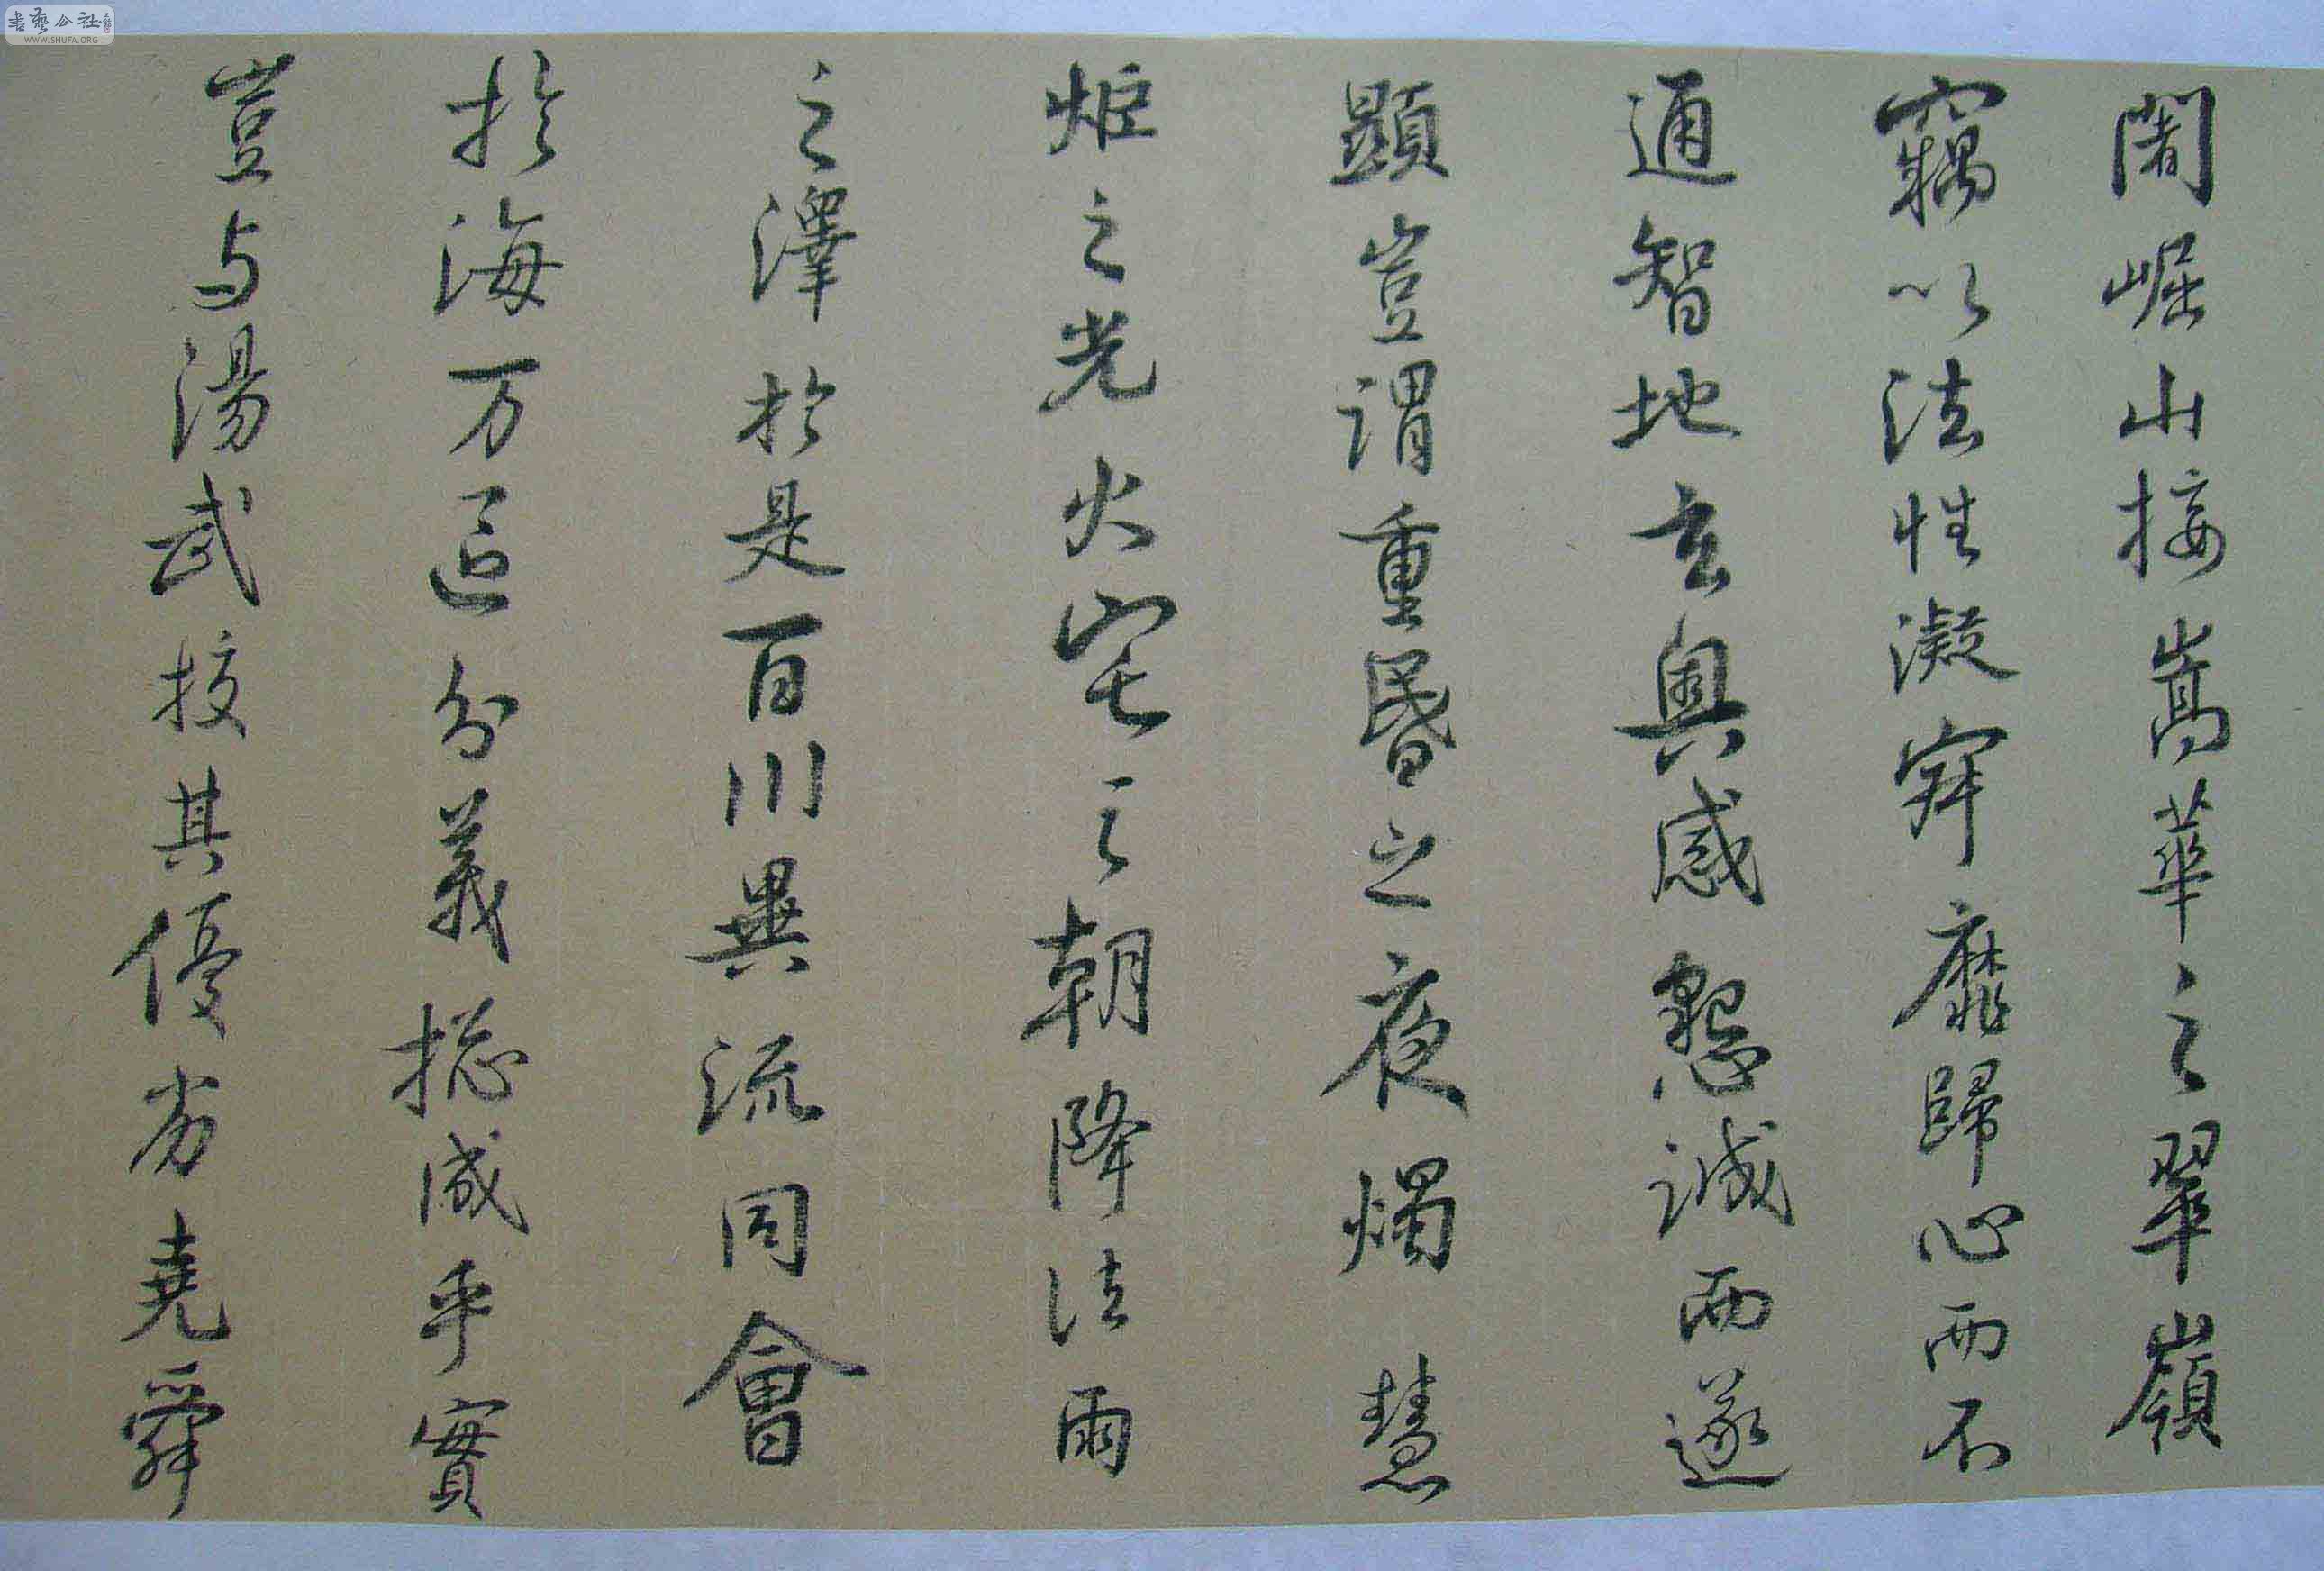 闍崛山接嵩華之翠嶺
竊以法性凝寂靡歸心而不
通智地玄奧感懇誠而遂
顯豈謂重昏之夜燭慧
炬之光火宅之朝降法雨
之澤於是百川異流同會
於海万區分義揔成乎實
豈与湯武挍其優劣堯舜
書藝公社
WWW.SHUFA.ORG